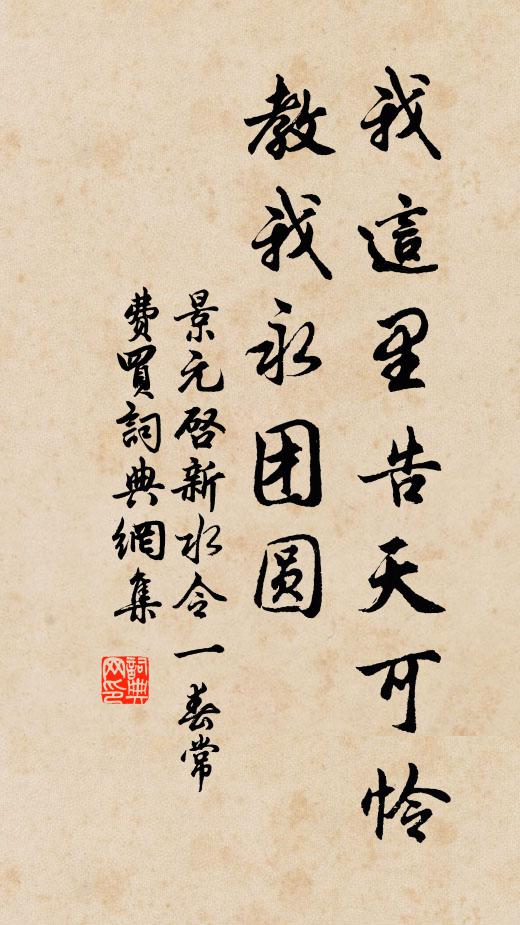 我這里告天可怜
教我永团圆
景元启新水令一春常
費買詞典網集
詞典
网印